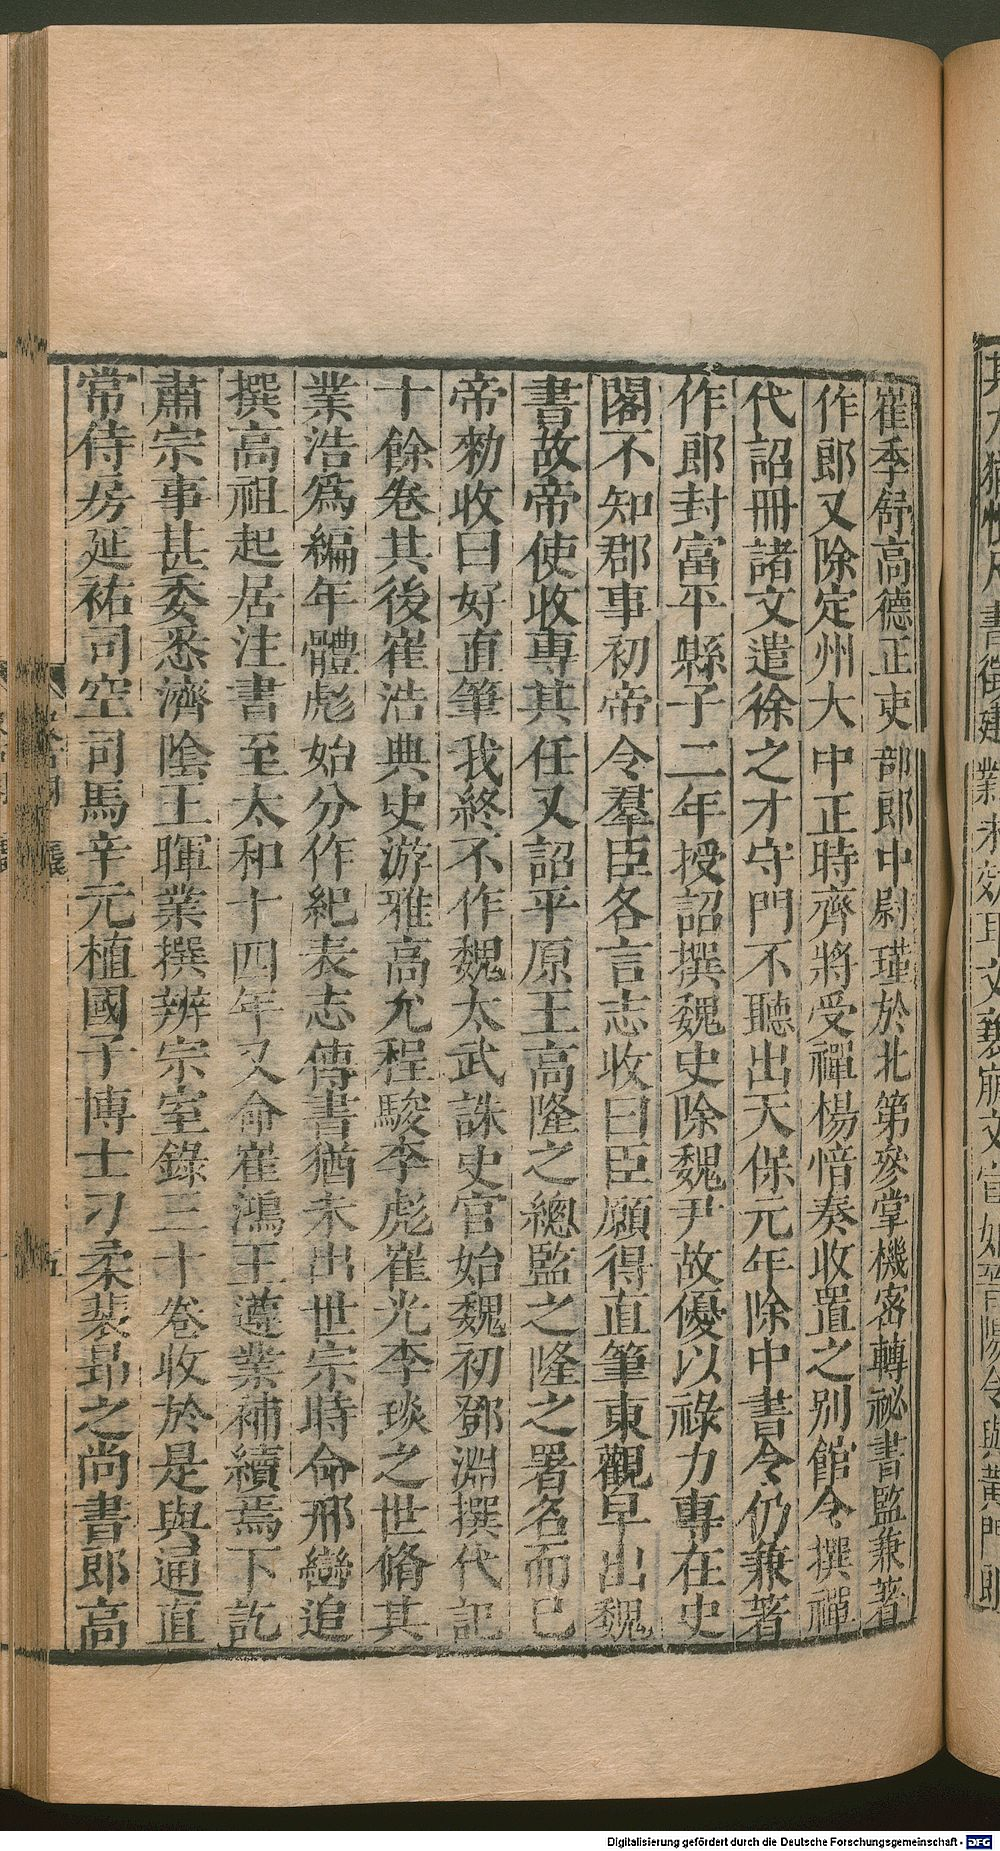 崔季舒高德正吏部郎中尉瑾於北第參掌機密轉祕書監兼著
作郎又除定州大中正時齊將受禪楊愔奏收置之別館令撰禪
代詔冊諸文遣徐之才守門不聽出天保元年除中書令仍兼著
作郎封富平縣子二年授詔撰魏史除魏尹故優以祿力專在史
閣不知郡事初帝令羣臣各言志收曰臣願得直筆東觀早出魏
書故帝使收專其任又詔平原王高隆之總監之隆之署名而已
帝勑收曰好直筆我終不作魏太武誅史官始魏初鄧淵撰代記
十餘卷其後崔浩典史游雅高允程駿李彪崔光李琰之世脩其
業浩爲編年體彪始分作紀表志傳書猶未出世宗時命邢巒追
撰高祖起居注書至太和十四年又命崔鴻王遵業補續焉下訖
肅宗事甚委悉濟陰王暉業撰辨宗室錄三十卷收於是與通直
常侍房延祐司空司馬辛元植國子博士刁柔裴昂之尚書郎高
Digitalisierung gefördert durch die Deutsche Forschungsgemeinschaft - DFG